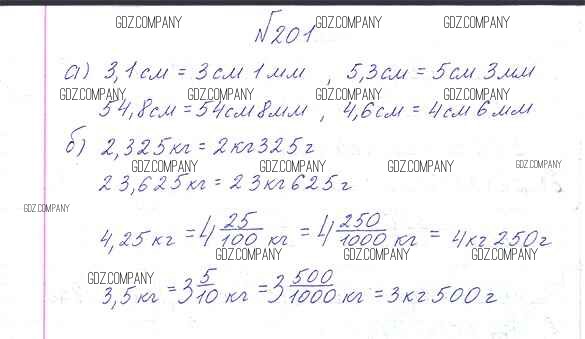 GDZ.COMPANY GDZ.COMPANY GDZ.COMPANY
№201
а) 3,1см = 3см 1мм , 5,3см = 5см 3мм
GDZ.COMPANY GDZ.COMPANY GDZ.COMPANY GDZ.COMPANY
54,8см = 54см 8мм , 4,6см = 4см 6мм
б) 2,325кг = 2кг 325г
GDZ.COMPANY GDZ.COMPANY GDZ.COMPANY GDZ.COMPANY
23,625кг = 23кг 625г
GDZ.COMPANY
4,25кг = 4 25/100 кг = 4 250/1000 кг = 4кг 250г
GDZ.COMPANY GDZ.COMPANY GDZ.COMPANY
GDZ.COMPANY
3,5кг = 3 5/10 кг = 3 500/1000 кг = 3кг 500г